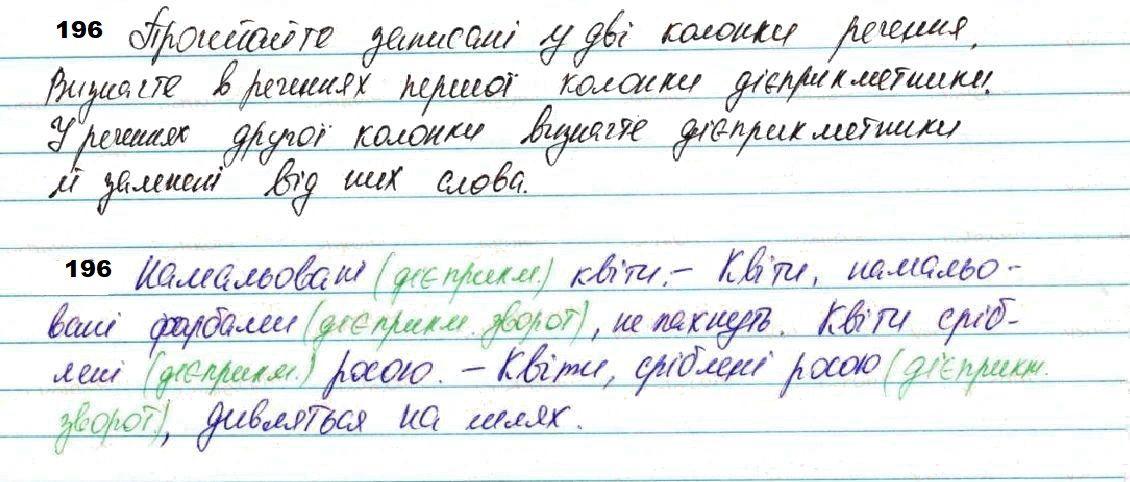 196 Прочитайте записані у дві колонки речення.
Визначте в реченнях першої колонки дієприкметники.
У реченнях другої колонки визначте дієприкметники
й залежні від них слова.
196 Намальовані (дієприкм.) квіти. – Квіти, намальо-
вані фарбами (дієприкм. зворот), не пахнуть. Квіти сріб-
лені (дієприкм.) росою. – Квіти, сріблені росою (дієприкм.
зворот), дивляться на шлях.